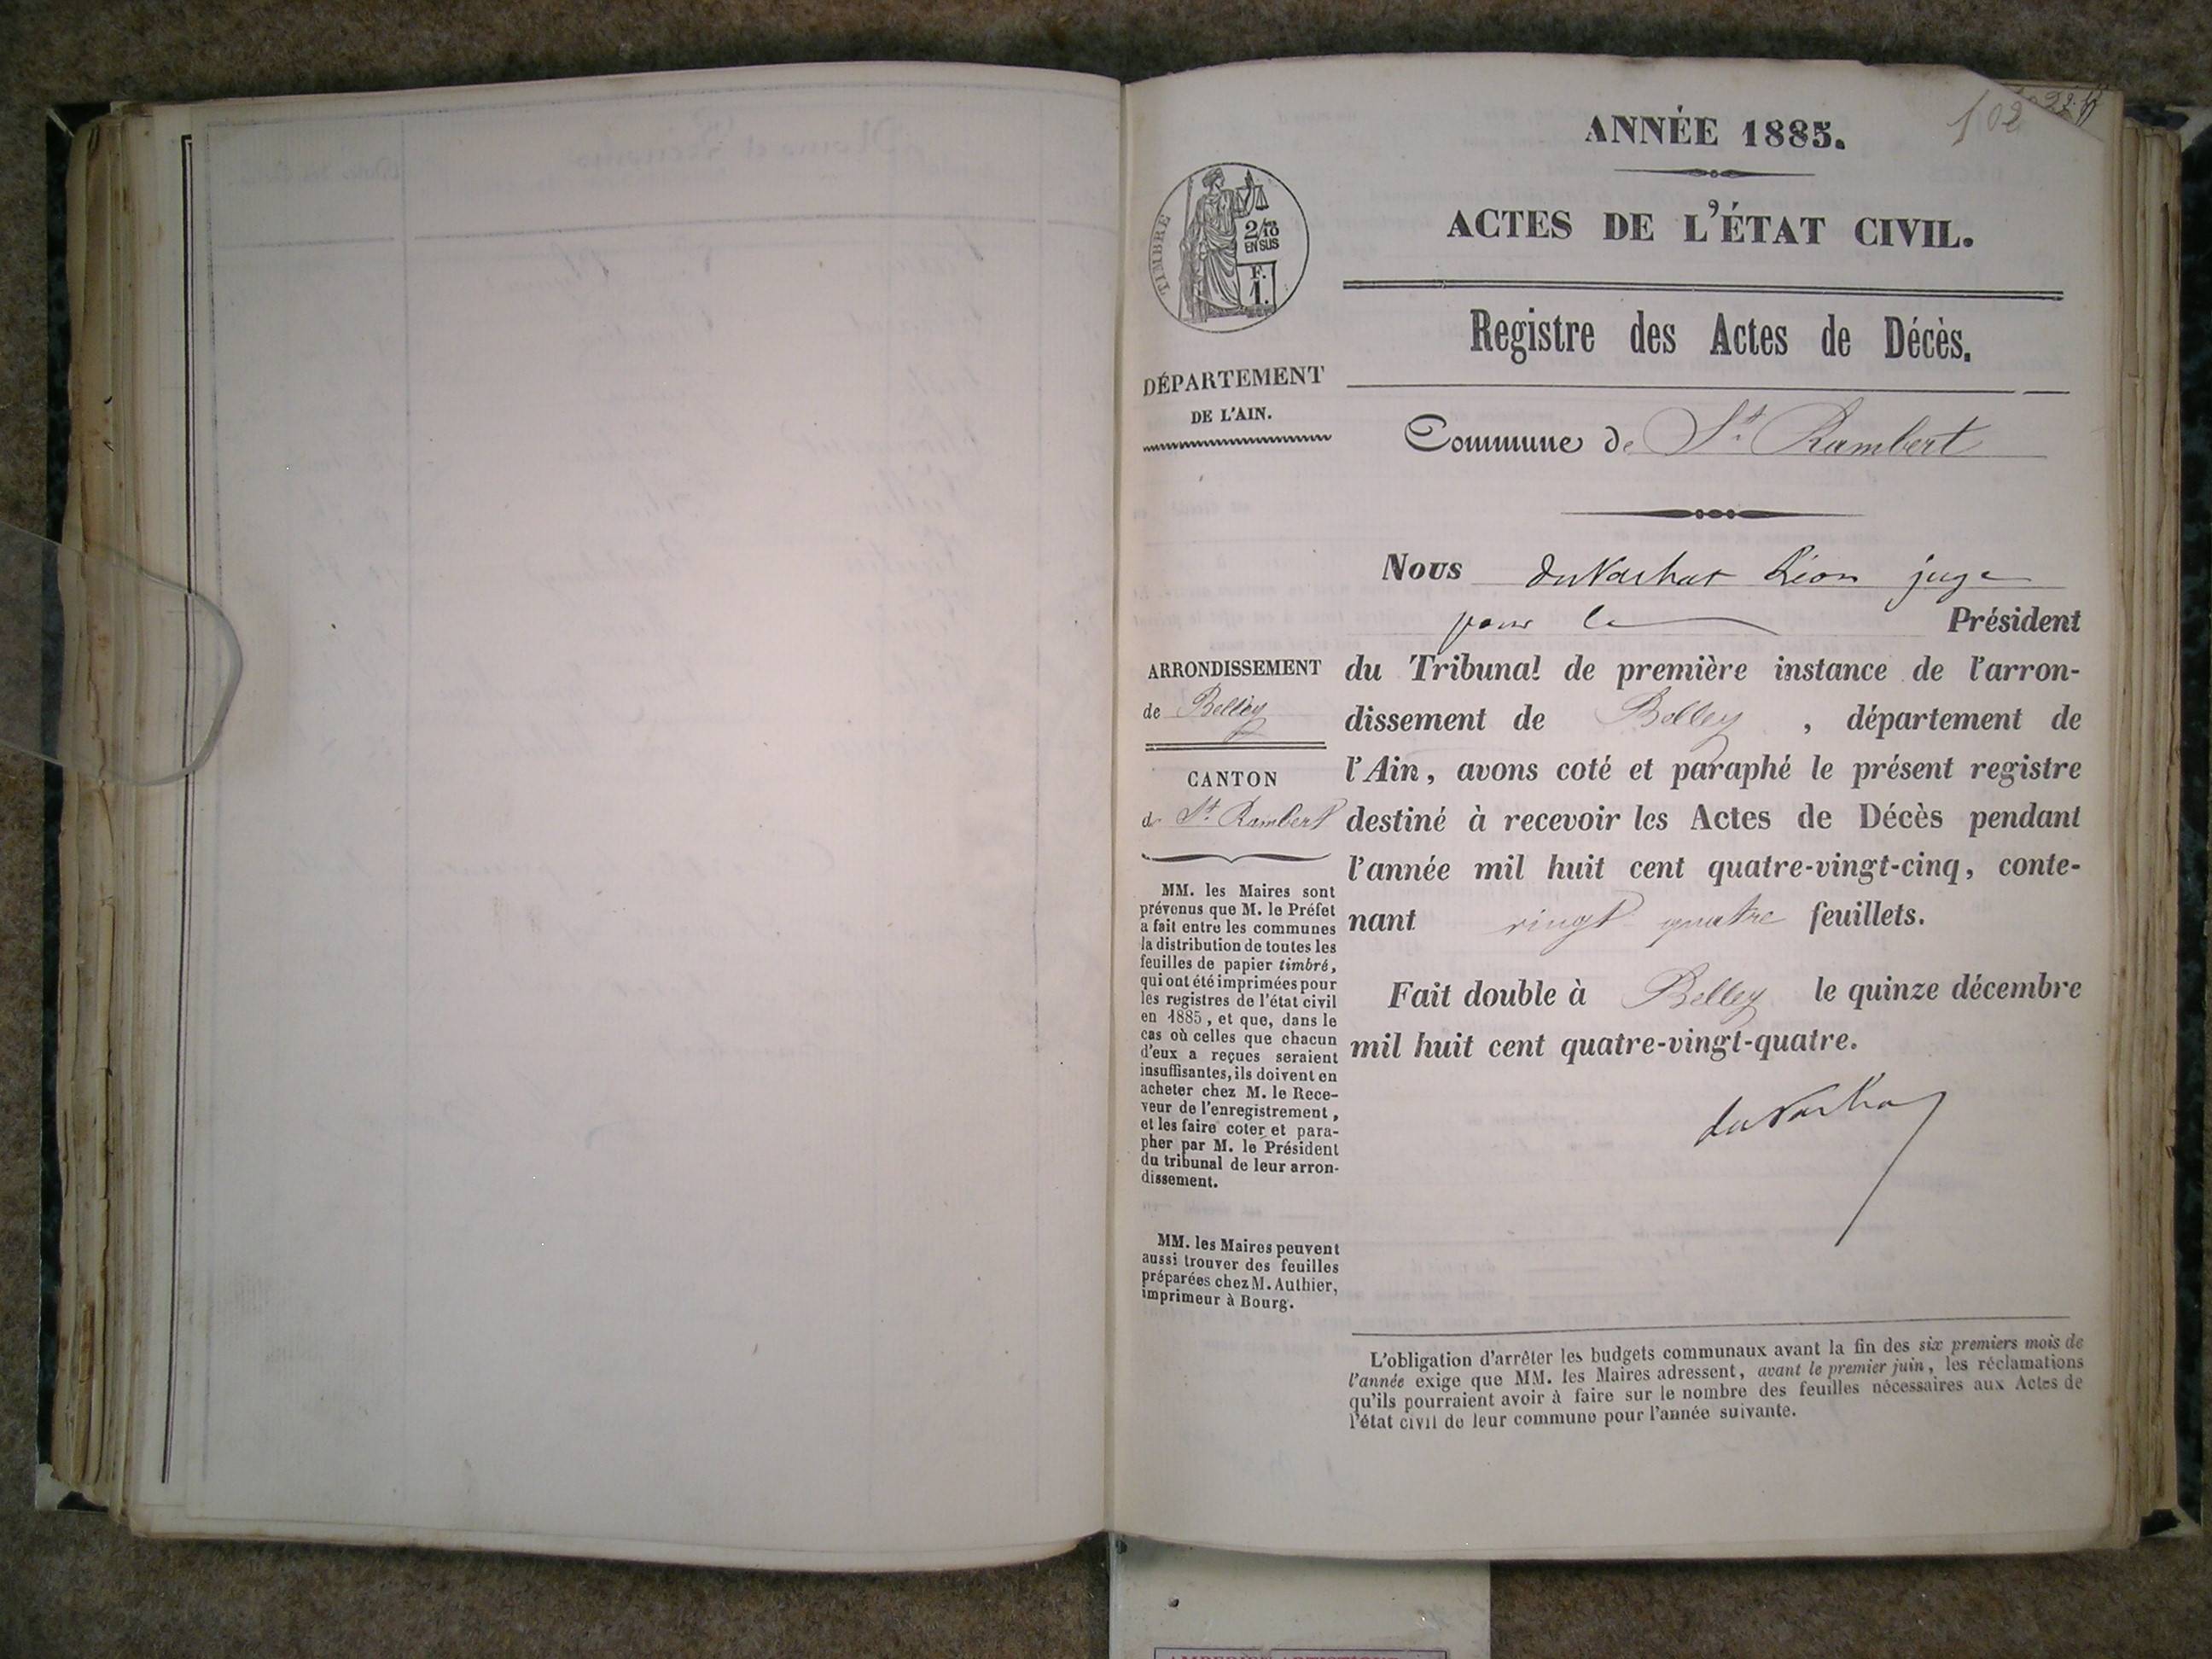 102
ANNÉE 1885.
ACTES DE L'ÉTAT CIVIL.
TIMBRE
2/10
EN SUS
F.
1.
Registre des Actes de Décès.
DÉPARTEMENT
DE L'AIN.
Commune de St. Rambert
Nous Léon juge
pour le Président
du Tribunal de première instance de l'arron-
dissement de Belley, département de
l'Ain, avons coté et paraphé le présent registre
destiné à recevoir les Actes de Décès pendant
l'année mil huit cent quatre-vingt-cinq, conte-
nant vingt quatre feuillets.
Fait double à Belley le quinze décembre
mil huit cent quatre-vingt-quatre.
ARRONDISSEMENT
de Belley
CANTON
de St. Rambert
MM. les Maires sont
prévenus que M. le Préfet
a fait entre les communes
la distribution de toutes les
feuilles de papier timbré,
qui ont été imprimées pour
les registres de l'état civil
en 1885, et que, dans le
cas où celles que chacun
d'eux a reçues seraient
insuffisantes, ils doivent en
acheter chez M. le Rece-
veur de l'enregistrement,
et les faire coter et para-
pher par M. le Président
du tribunal de leur arron-
dissement.
MM. les Maires peuvent
aussi trouver des feuilles
préparées chez M. Authier,
imprimeur à Bourg.
L'obligation d'arrêter les budgets communaux avant la fin des six premiers mois de
l'année exige que MM. les Maires adressent, avant le premier juin, les réclamations
qu'ils pourraient avoir à faire sur le nombre des feuilles nécessaires aux Actes de
l'état civil de leur commune pour l'année suivante.